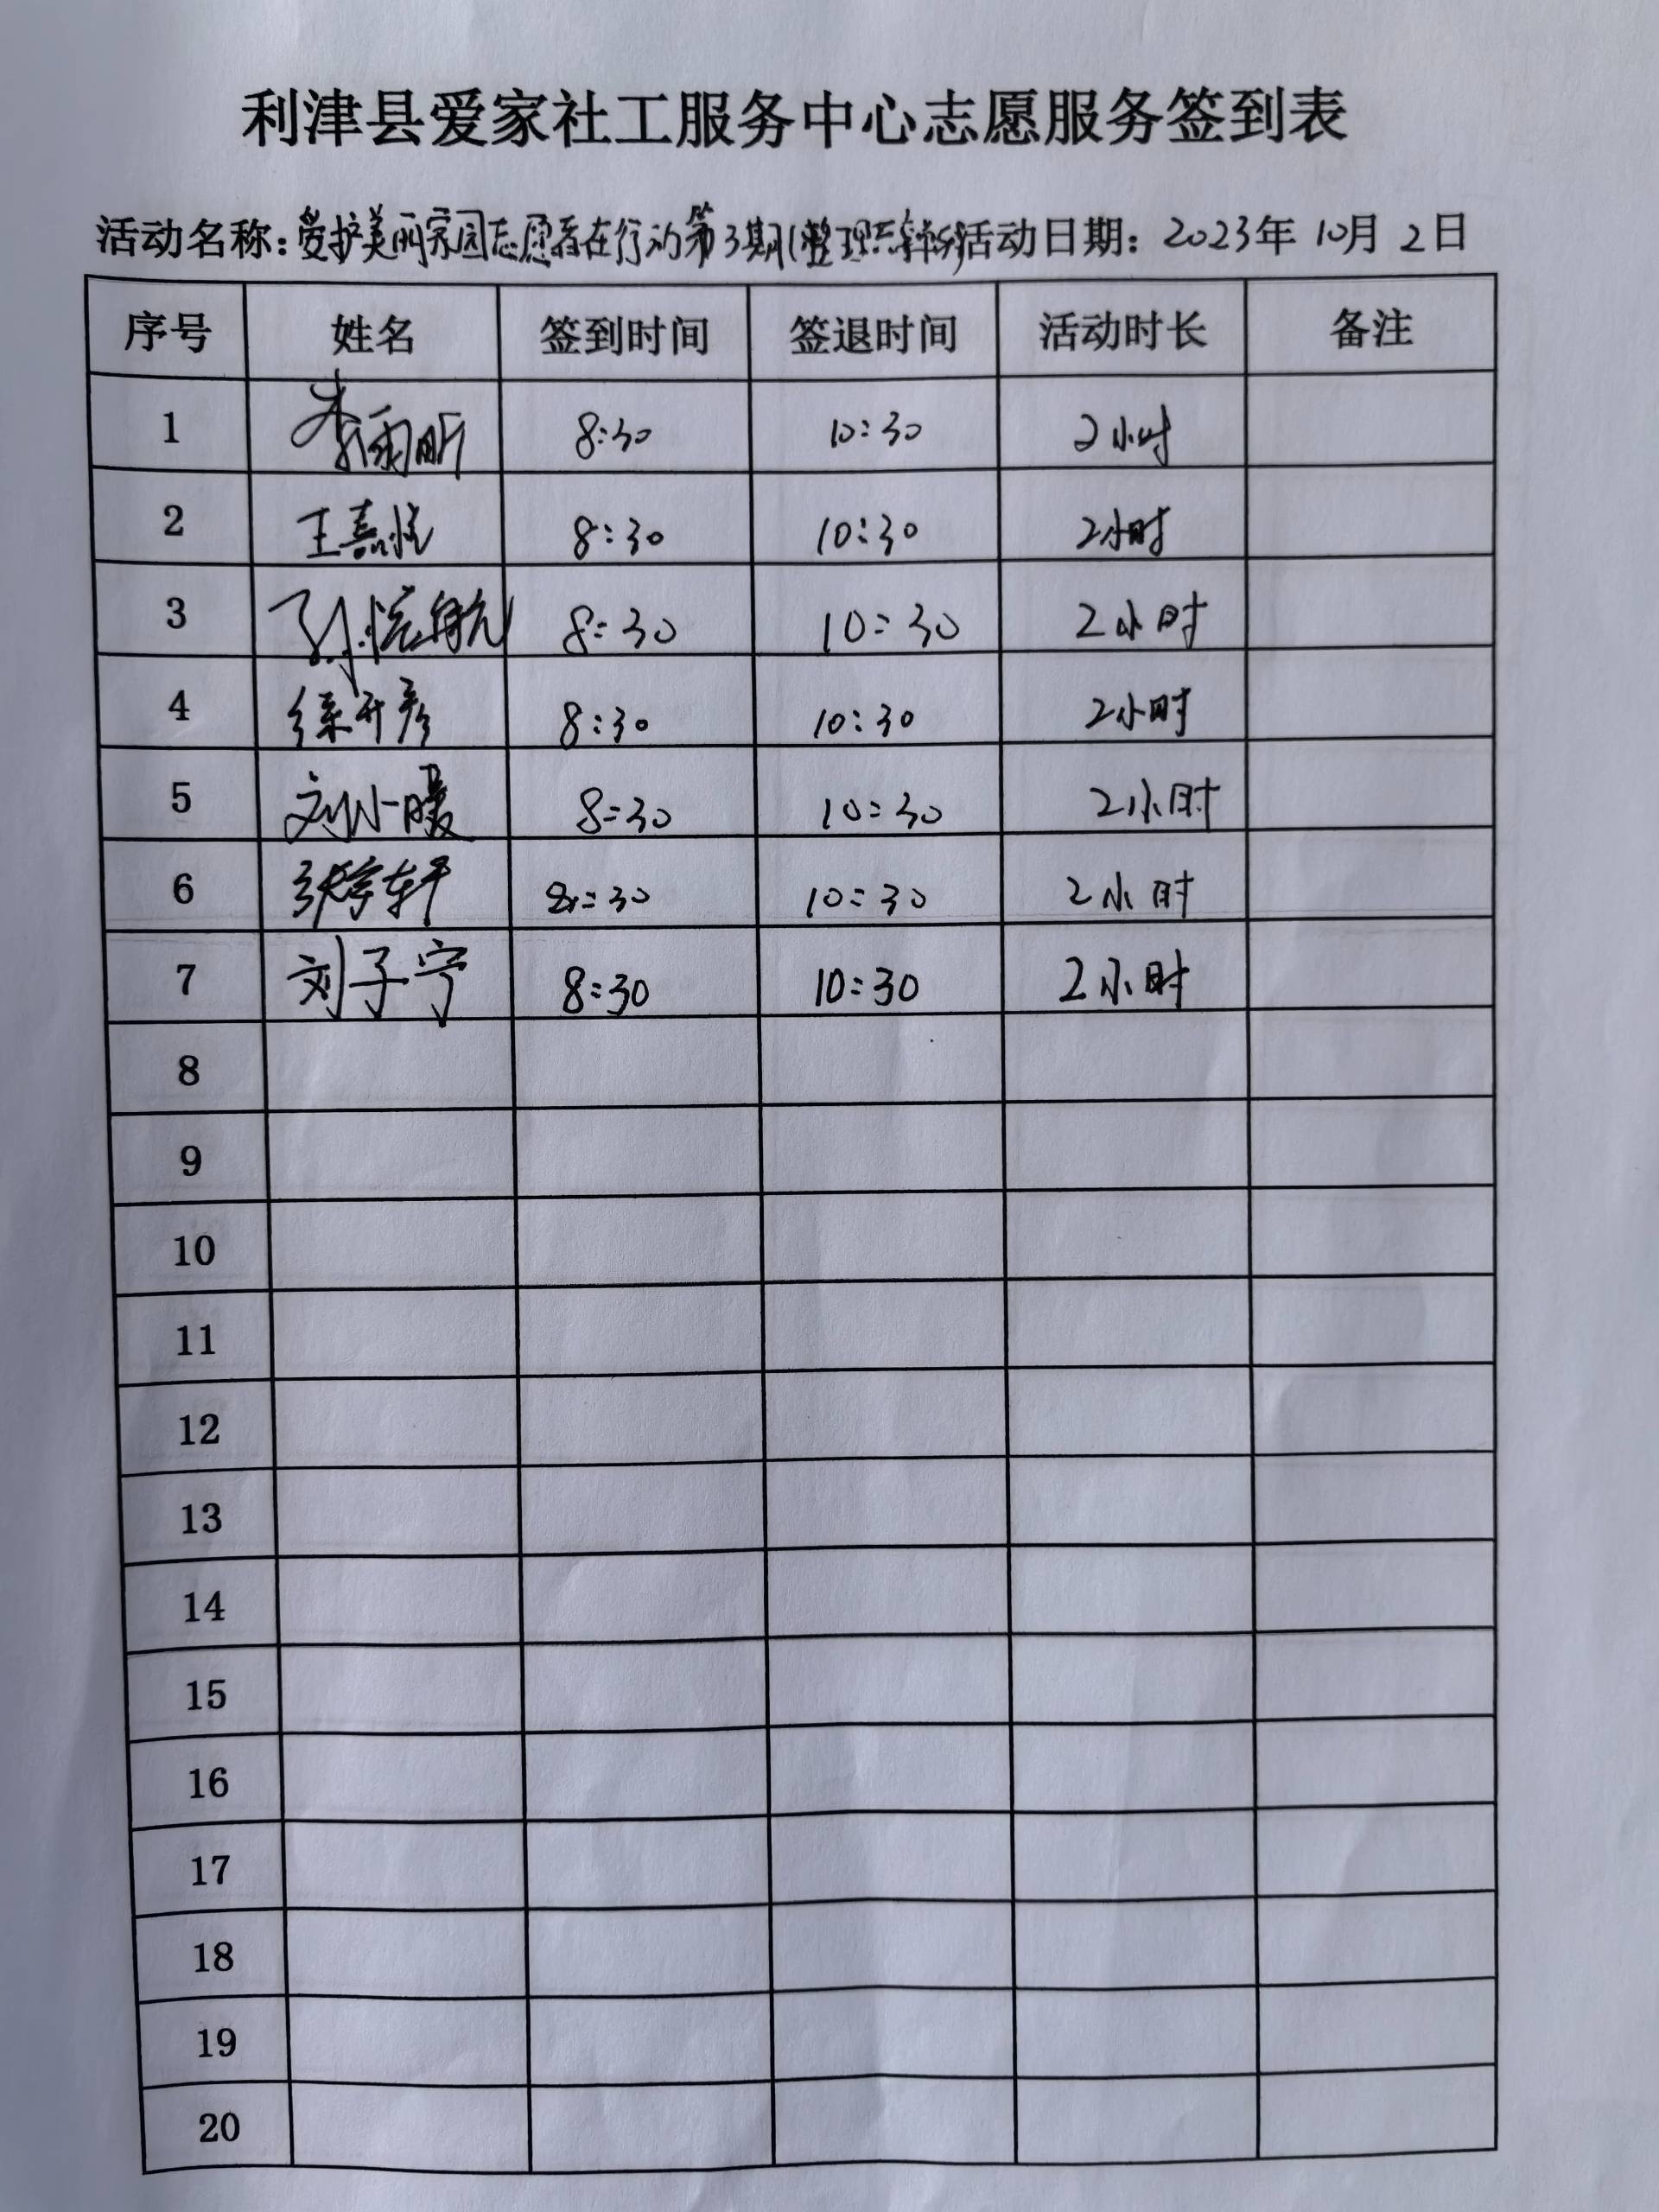 利津县爱家社工服务中心志愿服务签到表
活动名称：爱护美丽家园志愿者在行动第3期(整理共享单车 活动日期：2023年10月2日
序号 姓名 签到时间 签退时间 活动时长 备注
1 李雨昕 8:30 10:30 2小时
2 王嘉悦 8:30 10:30 2小时
3 孙 航 8:30 10:30 2小时
4 徐 彦 8:30 10:30 2小时
5 刘小暖 8:30 10:30 2小时
6 张宇轩 8:30 10:30 2小时
7 刘子宁 8:30 10:30 2小时
8
9
10
11
12
13
14
15
16
17
18
19
20